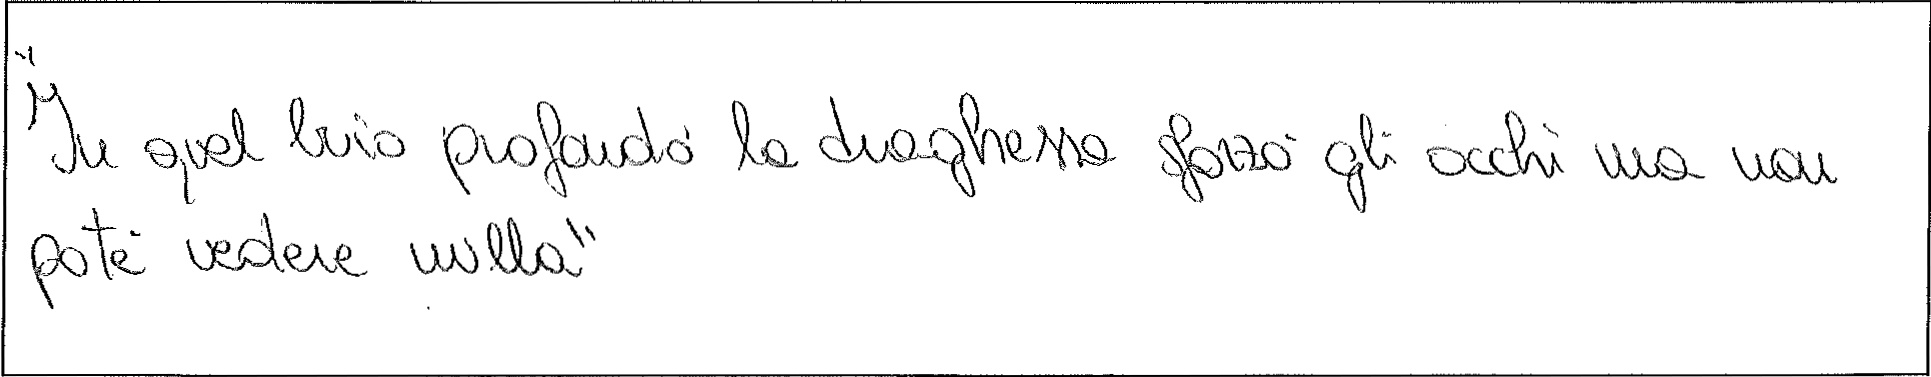 "In quel buio profondo la draghessa sforzò gli occhi ma non
potè vedere nulla"